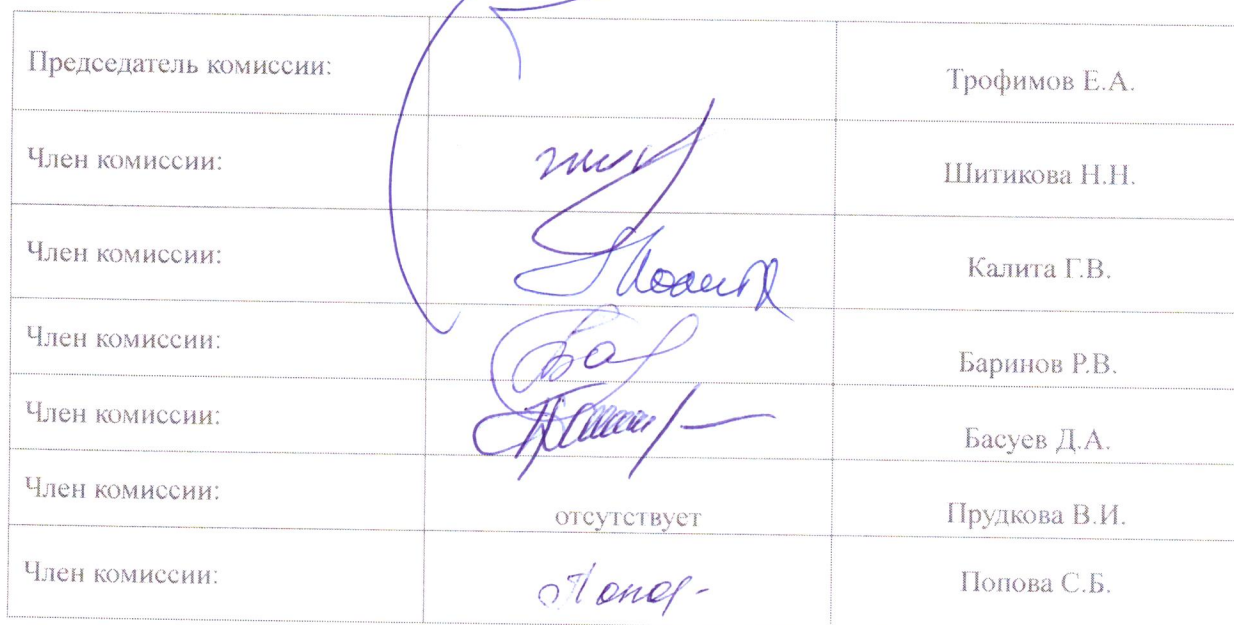 Председатель комиссии: Трофимов Е.А.
Член комиссии: Шитикова Н.Н.
Член комиссии: Калита Г.В.
Член комиссии: Баринов Р.В.
Член комиссии: Басуев Д.А.
Член комиссии: отсутствует Прудкова В.И.
Член комиссии: Попова С.Б.